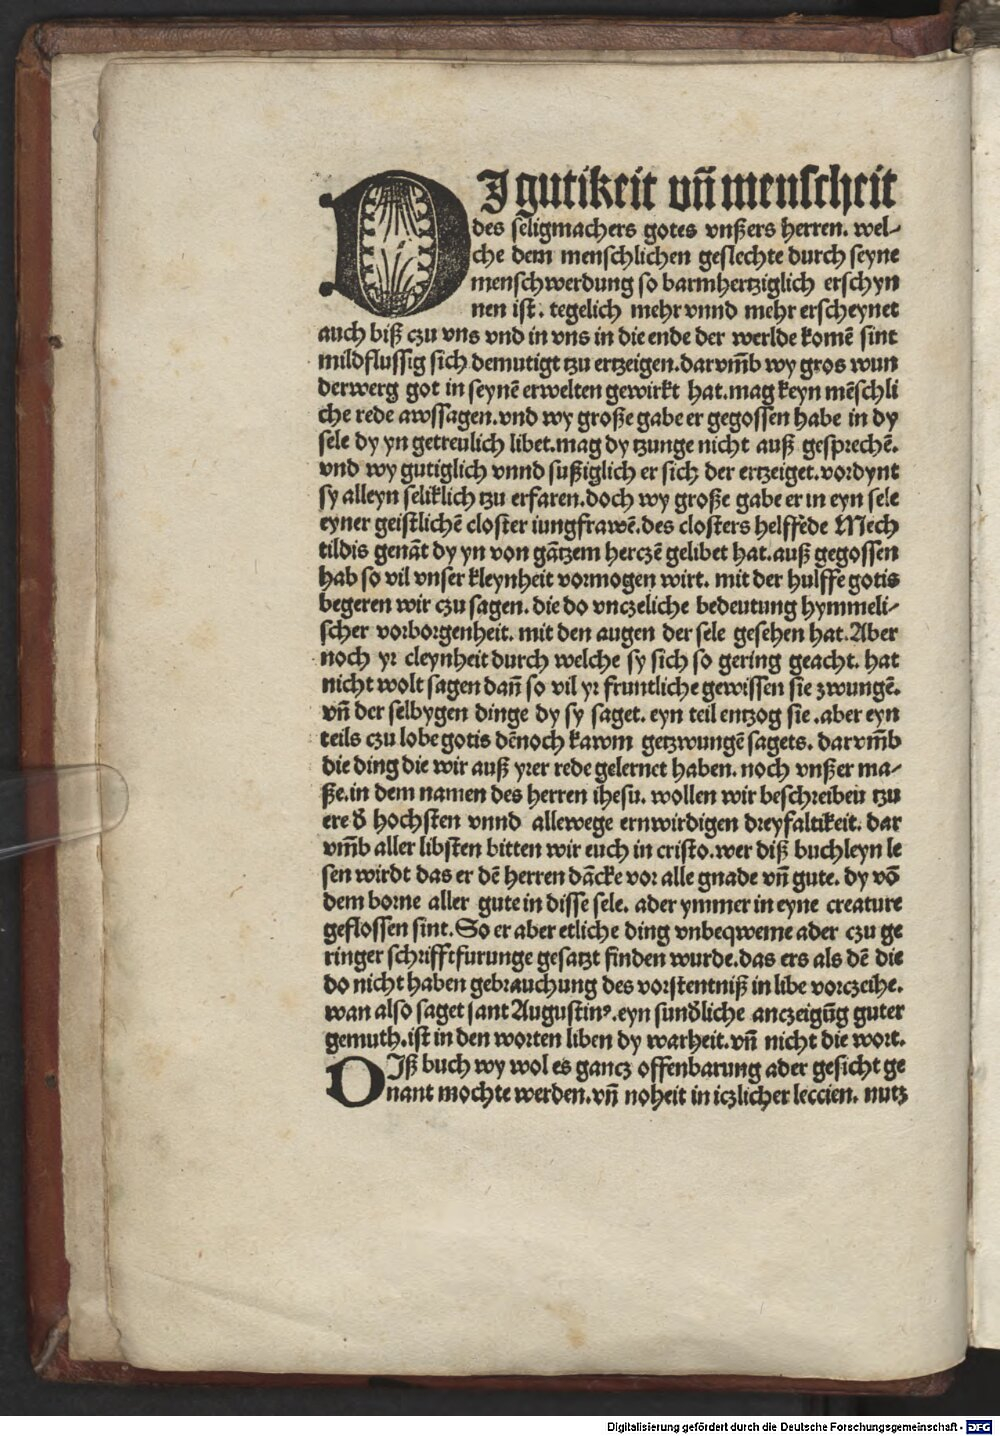 DJ gutikeit vn̄ menscheit
des seligmachers gotes vnßers herren. wel-
che dem menschlichen geslechte durch seyne
menschwerdung so barmhertziglich erschyn
nen ist. tegelich mehr vnnd mehr erscheynet
auch biß czu vns vnd in vns in die ende der werlde komē sint
mildflussig sich demutigt tzu ertzeigen. darvm̄b wy gros wun
derwerg got in seynē erwelten gewirkt hat. mag keyn mēschli
che rede awssagen. vnd wy große gabe er gegossen habe in dy
sele dy yn getreulich libet. mag dy tzunge nicht auß gesprechē.
vnd wy gutiglich vnnd sußiglich er sich der ertzeiget. vordynt
sy alleyn seliklich tzu erfaren. doch wy große gabe er in eyn sele
eyner geistlichē closter iungfrawē. des closters helffēde Mech
tildis genāt dy yn von gātzem herczē gelibet hat. auß gegossen
hab so vil vnser kleynheit vormogen wirt. mit der hulffe gotis
begeren wir czu sagen. die do vnczeliche bedeutung hymmeli-
scher vorborgenheit. mit den augen der sele gesehen hat. Aber
noch yr cleynheit durch welche sy sich so gering geacht. hat
nicht wolt sagen dan̄ so vil yr fruntliche gewissen sie zwungē.
vn̄ der selbygen dinge dy sy saget. eyn teil entzog sie. aber eyn
teils czu lobe gotis dēnoch kawm getzwungē sagets. darvm̄b
die ding die wir auß yrer rede gelernet haben. noch vnßer ma-
ße. in dem namen des herren ihesu. wollen wir beschreiben tzu
ere d̄ hochsten vnnd allewege ernwirdigen dreyfaltikeit. dar
vm̄b aller libsten bitten wir euch in cristo. wer diß buchleyn le
sen wirdt das er dē herren dācke vor alle gnade vn̄ gute. dy vō
dem borne aller gute in disse sele. ader ymmer in eyne creature
geflossen sint. So er aber etliche ding vnbeqweme ader czu ge
ringer schrifftfurunge gesatzt finden wurde. das ers als dē die
do nicht haben gebrauchung des vorstentniß in libe vorczeihe.
wan also saget sant Augustinꝰ. eyn sund̄liche anczeigūg guter
gemuth. ist in den worten liben dy warheit. vn̄ nicht die wort.
DIß buch wy wol es gancz offenbarung ader gesicht ge
nant mochte werden. vn̄ noheit in iczlicher leccien. nutz
Digitalisierung gefördert durch die Deutsche Forschungsgemeinschaft - DFG